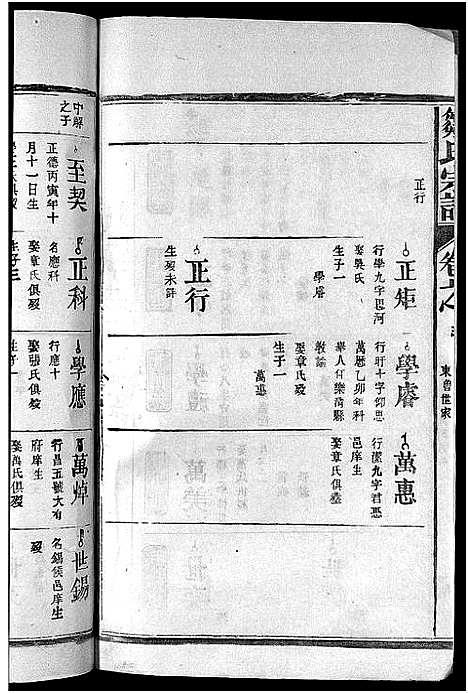 鄒氏宗譜
東魯世家
正行
正矩
行學九字思河
娶吳氏
生子一
學睿
正行
生歿未詳
學睿
行旴十字仰思
萬曆乙卯年科
舉人何樂清縣
教諭
娶章氏歿
生子一
萬惠
萬惠
行潔九字君憑
邑庠生
娶章氏俱歿
中解
之子
至契
正德丙寅年十
月十一日生
正科
名應科
娶章氏俱歿
學應
行應十
娶張氏俱歿
生子一
萬焯
行昌五號大有
府庠生
娶馮氏俱歿
世錫
名錫侯邑庠生
歿